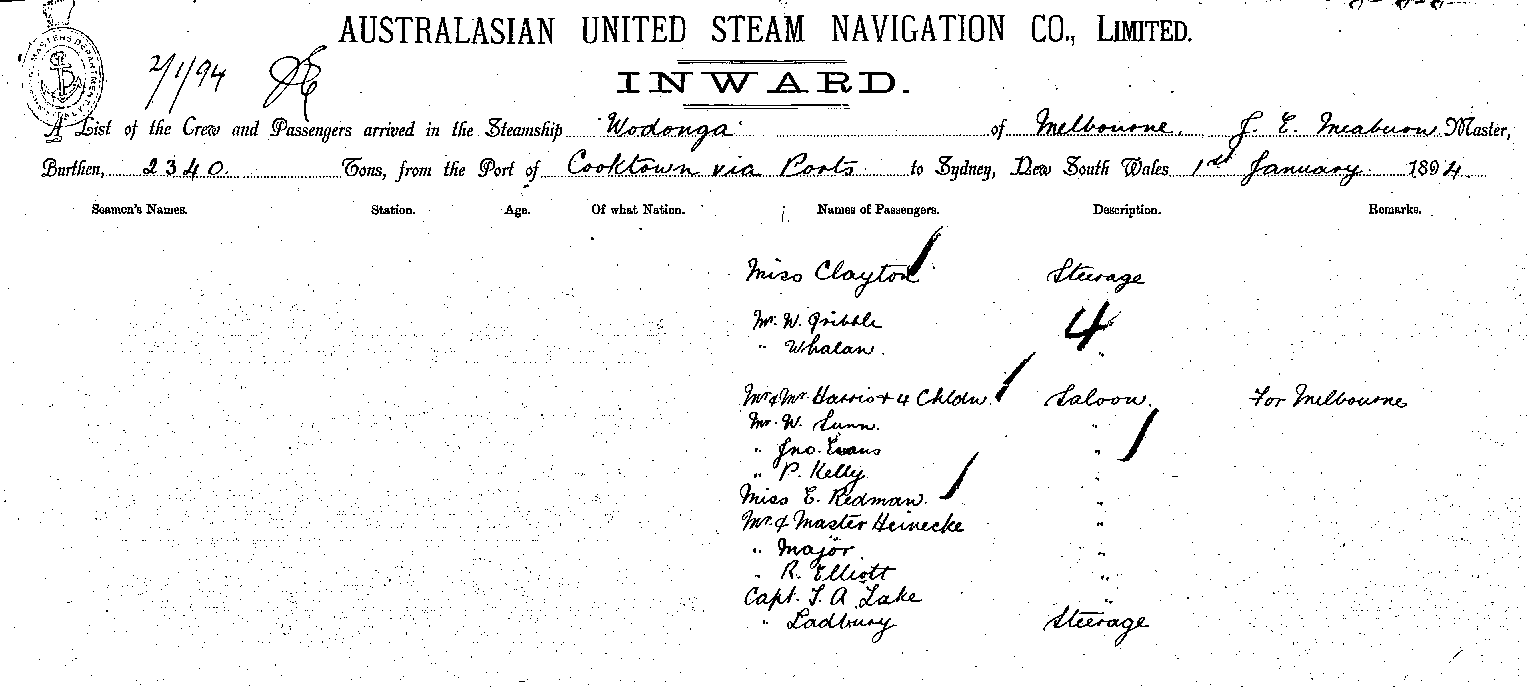 AUSTRALASIAN UNITED STEAM NAVIGATION CO., LIMITED.
2/1/94
INWARD.
A List of the Crew and Passengers arrived in the Steamship "Wodonga" of Melbourne, J. E. Meaburn Master,
Burthen, 2340. Tons, from the Port of Cooktown via Ports to Sydney, New South Wales 1st January 1894
Seamen's Names. Station. Age. Of what Nation. Names of Passengers. Description. Remarks.
Miss Clayton Steerage
Mr. W. Gribble 4
" Whalan. "
Mr & Mrs Harris + 4 Chldn. Saloon. For Melbourne
Mr. W. Lunn. "
" Jno. Evans "
" P. Kelly
Miss E. Redman. "
Mr & Master Heinecke "
" Major. "
" R. Elliott "
Capt. T. A. Lake "
" Ladbury Steerage